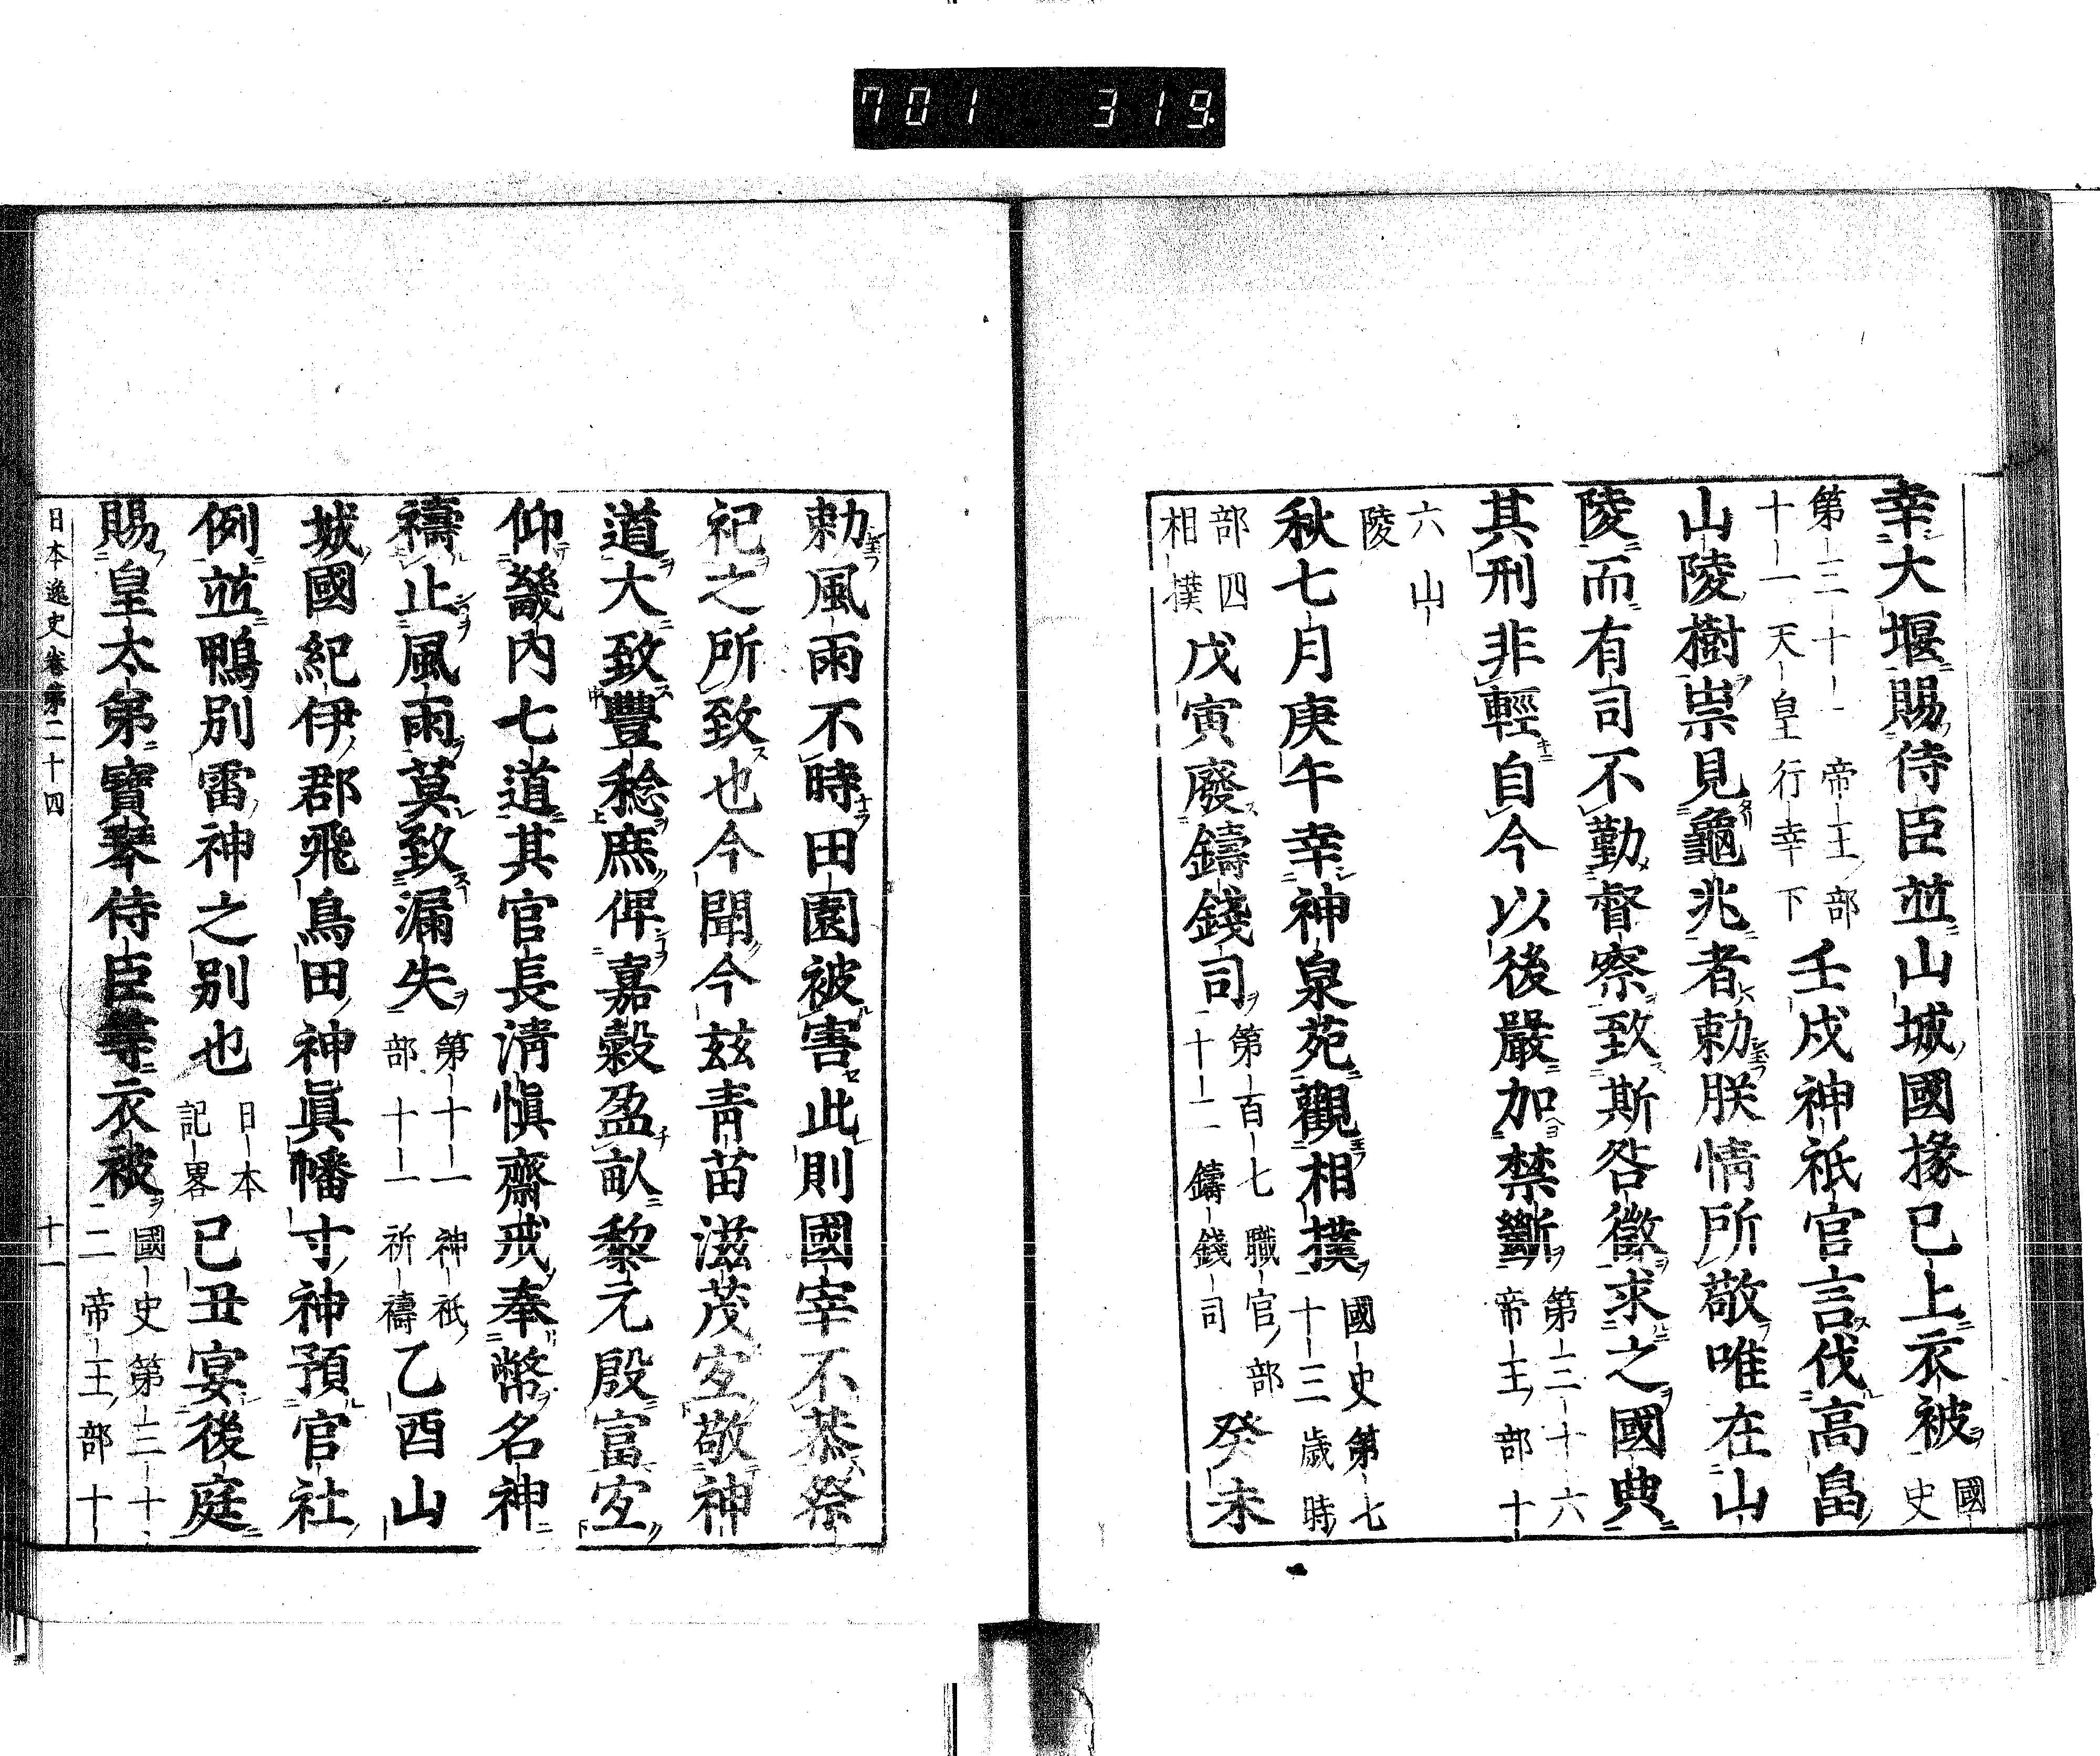 701 319
幸大堰賜侍臣並山城國掾已上衣被國史
第三十一帝王部十一天皇行幸下壬戌神祇官言伐高畠
山陵樹祟見龜兆者勅朕情所敬唯在山
陵而有司不勤督察致斯咎徵求之國典
其刑非輕自今以後嚴加禁斷第三十六帝王部十
六山陵
秋七月庚午幸神泉苑觀相撲國史第七十三歲時
部四相撲戊寅廢鑄錢司第百七職官部十二鑄錢司癸未
勅風雨不時田園被害此則國宰不恭祭
祀之所致也今聞今茲青苗滋茂宜敬神
道大致豐稔庶俾嘉穀盈畝黎元殷富宜
仰畿內七道其官長淸愼齋戒奉幣名神
禱止風雨莫致漏失第十一神祇部十一祈禱乙酉山
城國紀伊郡飛鳥田神眞幡寸神預官社
例並鴨別雷神之別也日本記畧己丑宴後庭
賜皇太弟寶琴侍臣等衣被國史第三十二帝王部十
日本逸史卷第二十四 十一